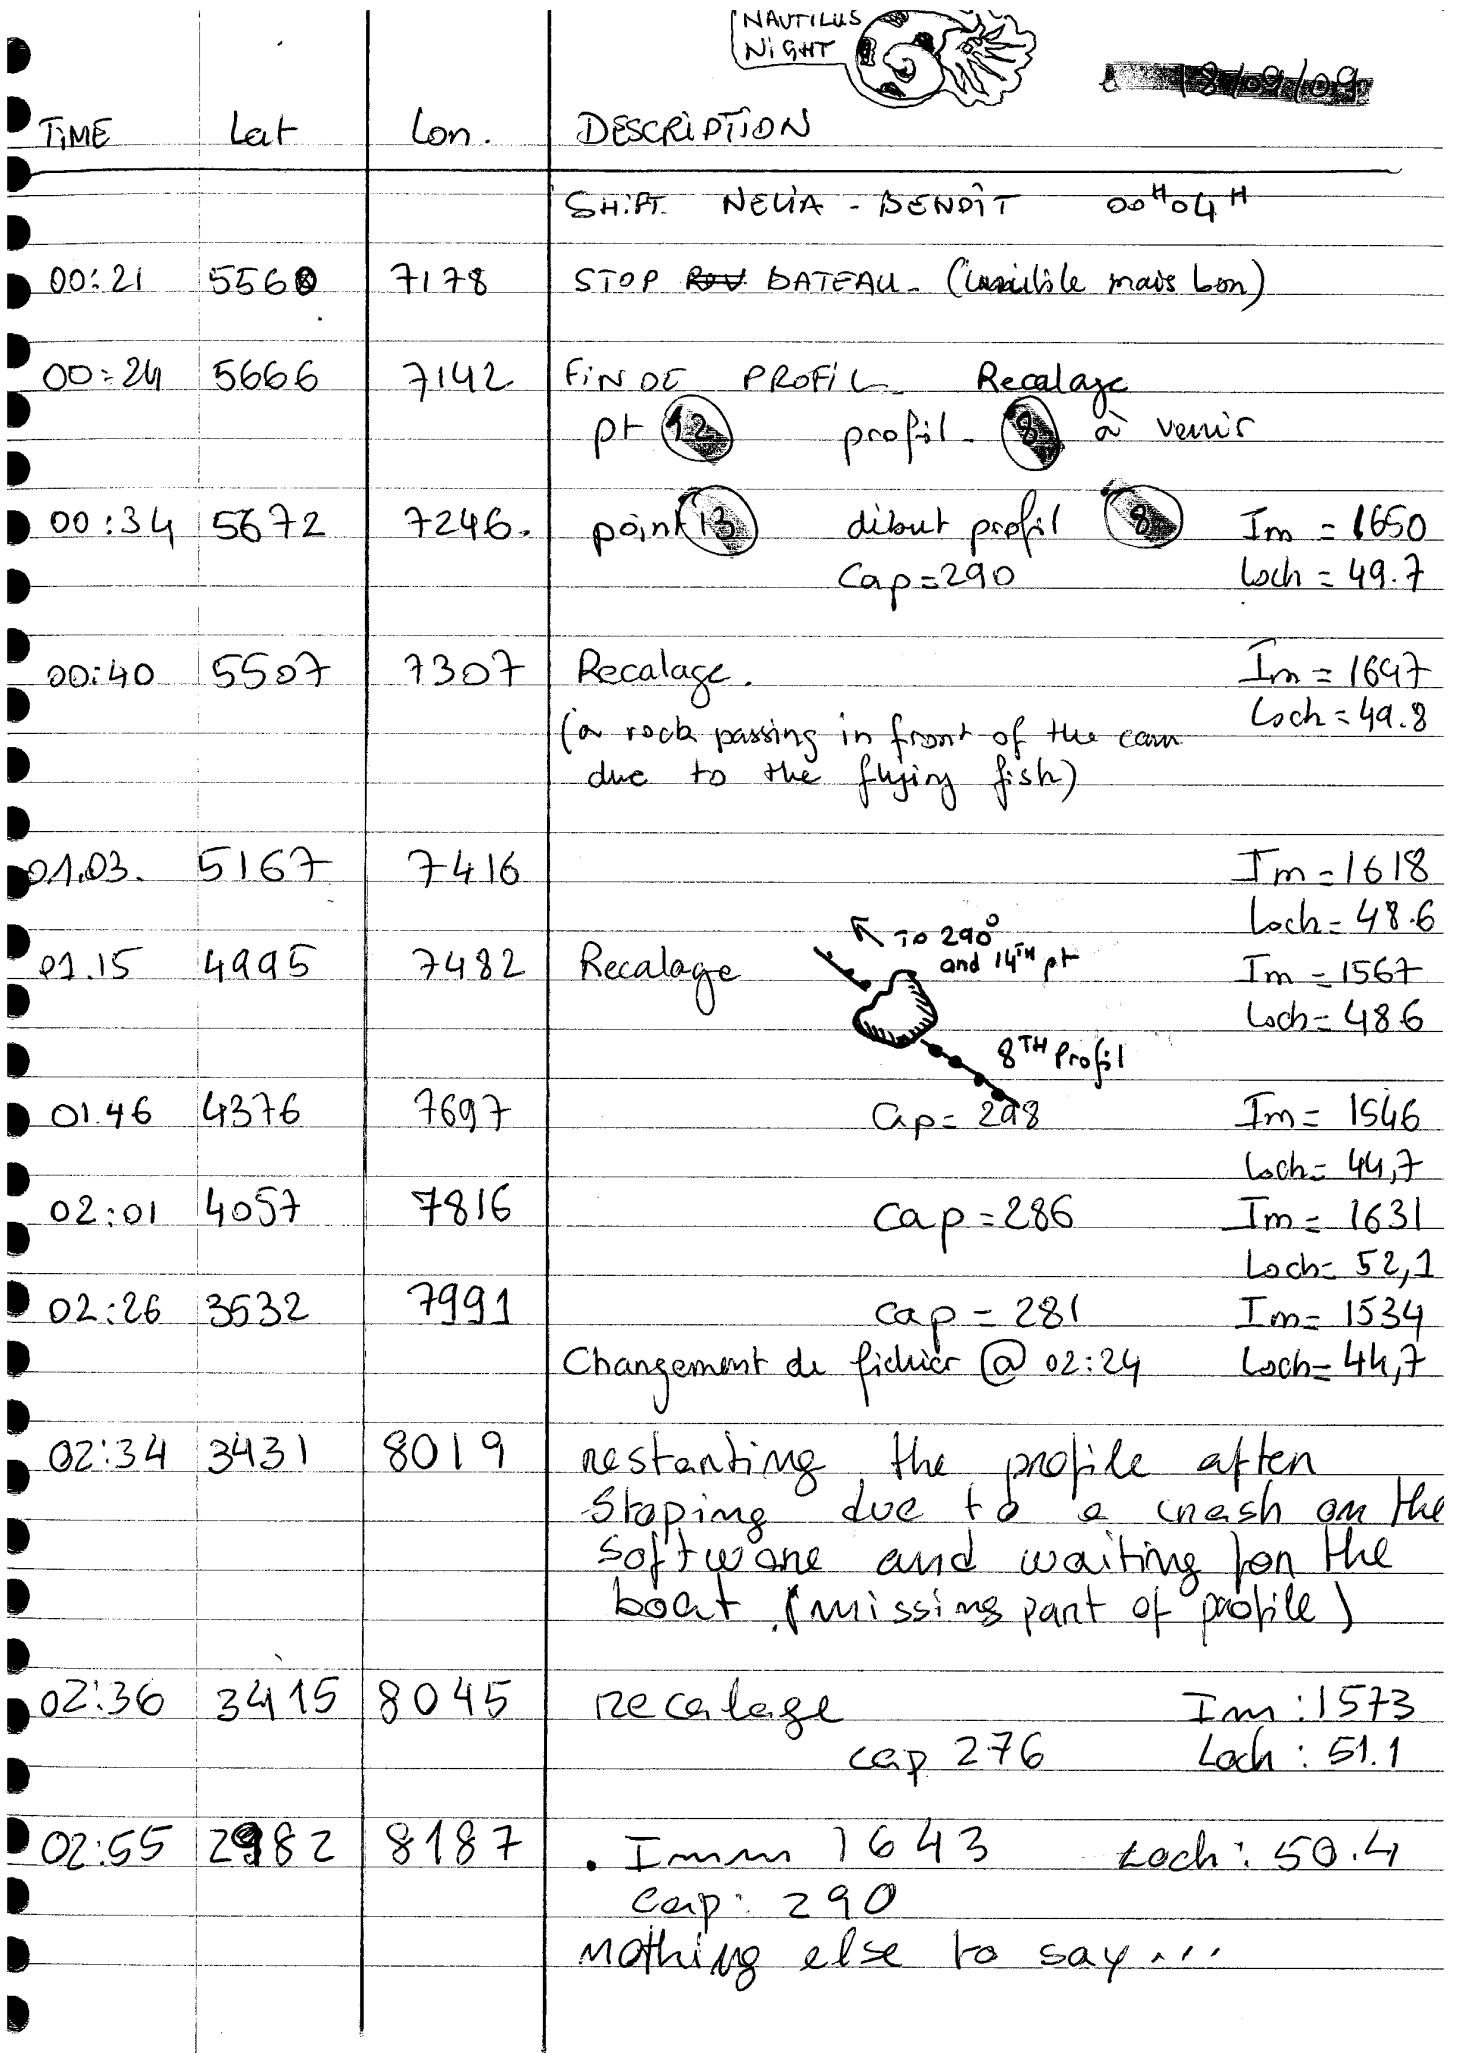 NAUTILUS
NIGHT
18/09/09
TIME Lat Lon. DESCRIPTION
SHIFT NELIA - BENOÎT 00H04H
00:21 5560 7178 STOP ROV BATEAU - (inutile mais bon)
00:24 5666 7142 FIN DE PROFIL Recalage
pt 12 profil 8 à venir
00:34 5672 7246. point 13 début profil 8 Im = 1650
Cap=290 Loch = 49.7
00:40 5507 7307 Recalage. Im = 1647
Loch = 49.8
(a rock passing in front of the cam
due to the flying fish)
01.03. 5167 7416 Im = 1618
Loch = 48.6
TO 290°
01.15 4995 7482 Recalage and 14TH pt Im = 1567
Loch = 486
8TH Profil
01.46 4376 7697 Cap = 298 Im = 1546
Loch = 44,7
02:01 4057 7816 cap = 286 Im = 1631
Loch = 52,1
02:26 3532 7991 cap = 281 Im = 1534
Changement de fichier @ 02:24 Loch = 44,7
02:34 3431 8019 restarting the profile after
stoping due to a crash on the
software and waiting for the
boat. (missing part of profile)
02:36 3415 8045 recalage Imm : 1573
cap 276 Loch : 51.1
02:55 2982 8187 . Imm 1643 Loch : 50.4
Cap : 290
nothing else to say...